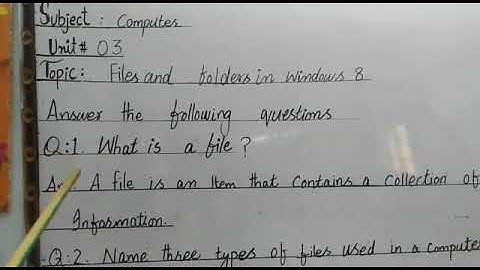 Subject: Computes
Unit# 03
Topic: Files and folders in windows 8
Answer the following questions
Q:1. What is a file?
An: A file is an Item that contains a collection of
Information.
Q:2. Name three types of files used in a compute